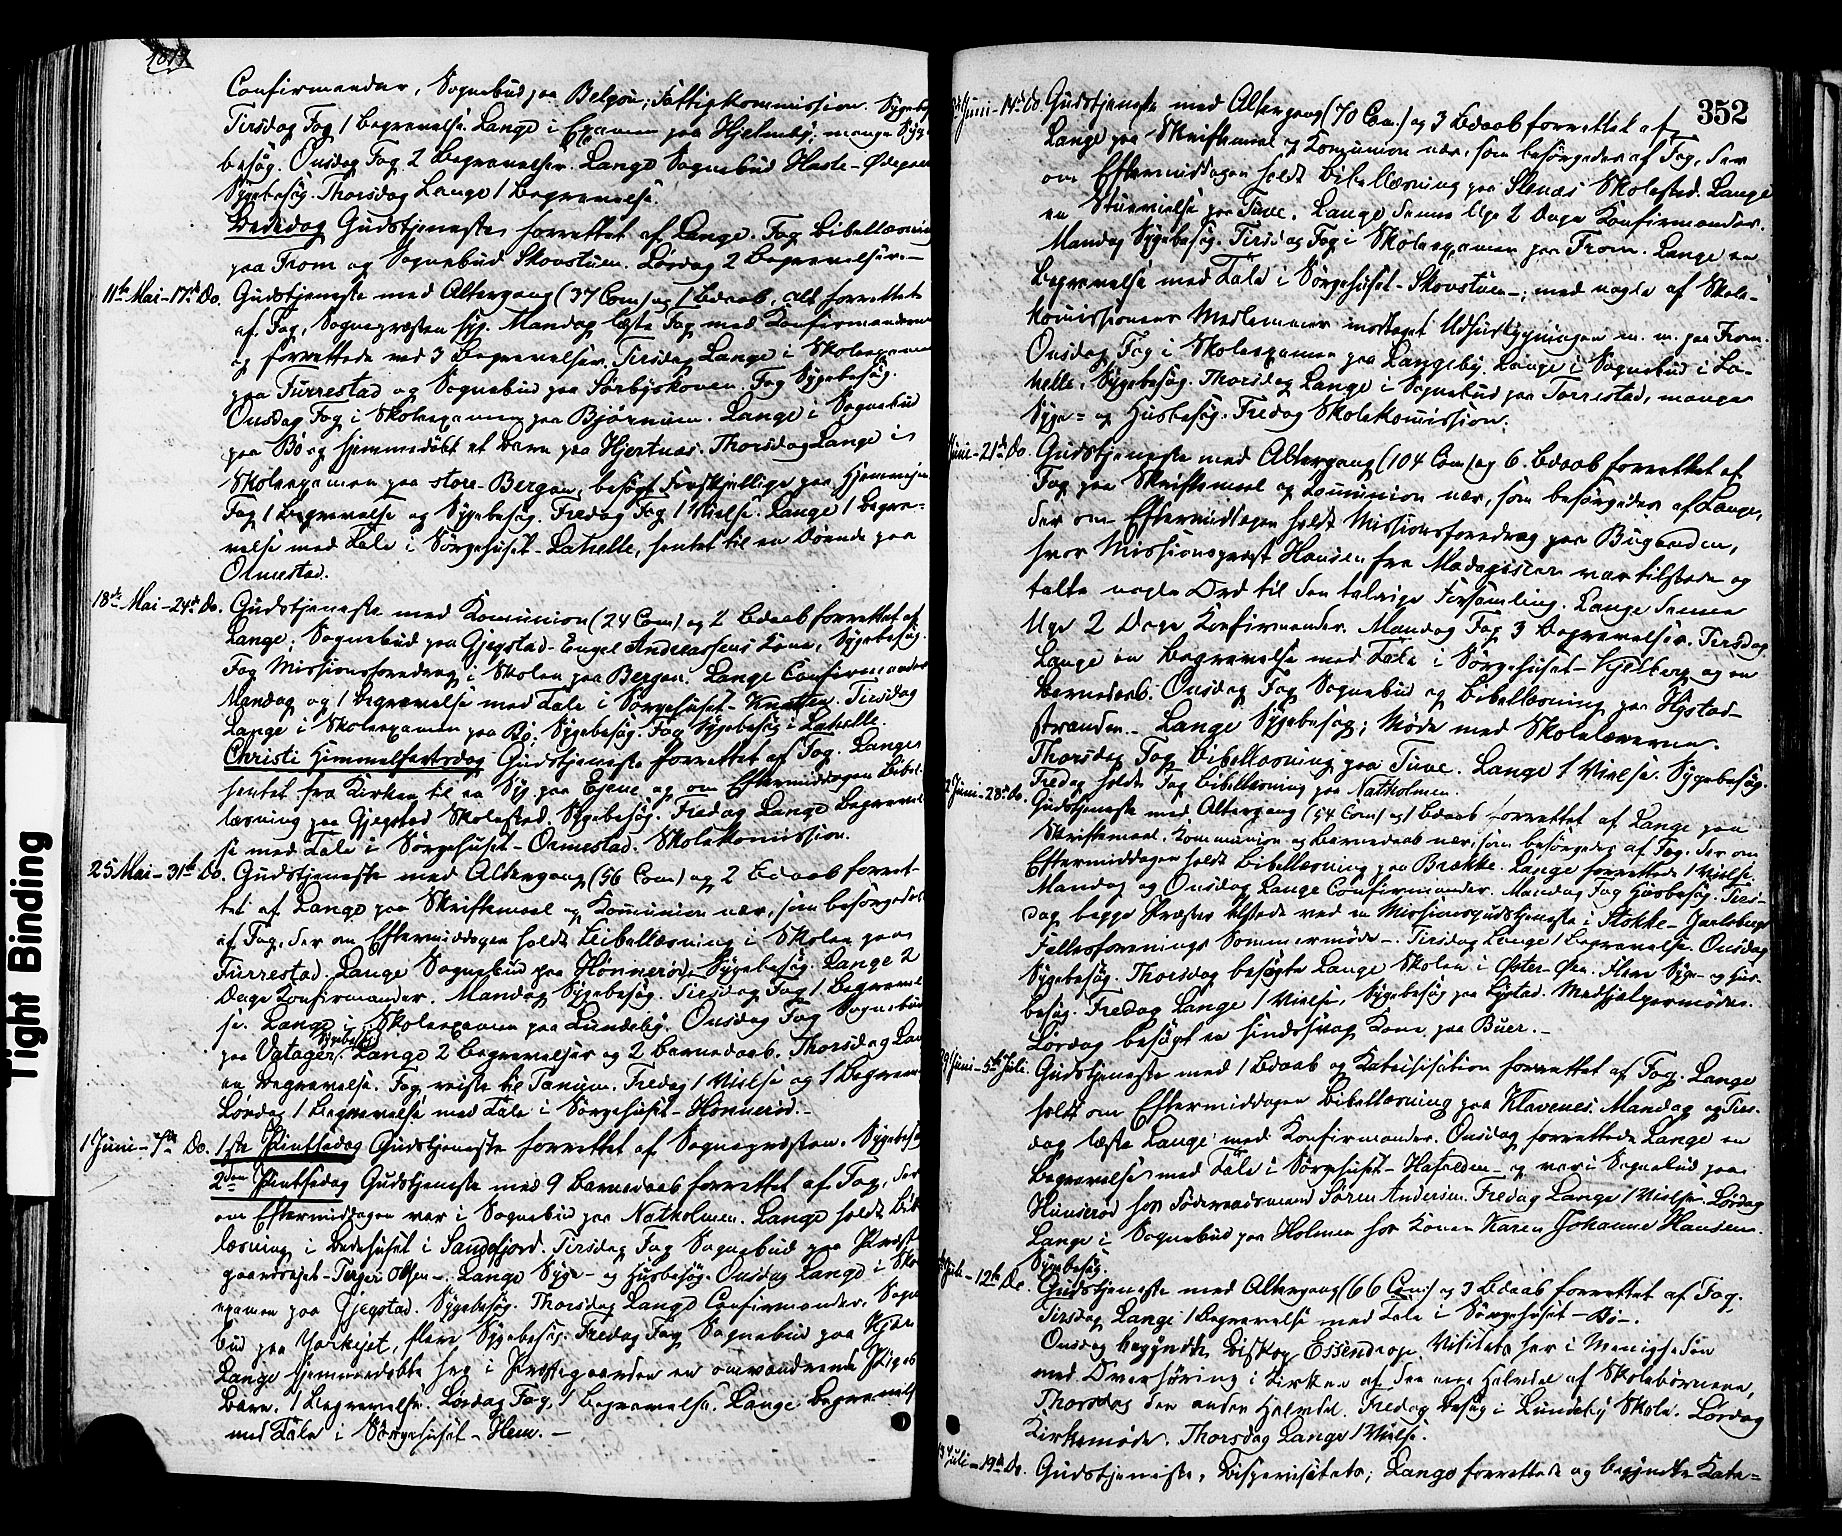 1879
Confirmander, Sognebud paa Belgøn, Fattigkommission. Sygebesøg
Tirsdag Fog 1 Begravelse. Lange i Examen paa Hjelmby. mange Syge-
besøg. Onsdag Fog 2 Begravelser. Lange Sognebud Hasle-Ødegaard
Sygebesøg. Thorsdag Lange 1 Begravelse.
Bededag Gudstjeneste forrettet af Lange. Fog Bibellæsning
paa From og Sognebud Skovstuen. Lørdag 2 Begravelser.—
11te Mai-17de Do. Gudstjeneste med Altergang (37 Com) og 1 Bdaab, alt forrettet
af Fog, Sognepræsten syg. Mandag læste Fog med Konfirmanderne
og forrettede ved 3 Begravelser. Tirsdag Lange i Skoleexamen
paa Furrestad og Sognebud paa Sørbyskoven. Fog Sygebesøg.
Onsdag Fog i Skoleexamen paa Bjørnum. Lange i Sognebud
paa Bø og hjemmedøbt et Barn paa Hjertnæs. Thorsdag Lange i
Skoleexamen paa store-Bergan, besøgt Forskjellige paa Hjemveien
Fog 1 Begravelse og Sygebesøg. Fredag Fog 1 Vielse. Lange 1 Begra-
velse med Tale i Sørgehuset-Lahelle, hentet til en Døende paa
Ormestad.
18de Mai-24de Do. Gudstjeneste med Komunion (24 Com) og 2 Bdaab forrettet af
Lange, Sognebud paa Gjegstad-Engel Andreassens Kone, Sygebesøg.
Fog Missionsforedrag i Skolen paa Bergan. Lange Confirmander
Mandag og 1 Begravelse med Tale i Sørgehuset-Knatten. Tirsdag
Lange i Skoleexamen paa Bø, Sygebesøg. Fog Sygebesøg i Lahelle.
Christi Himmelfartsdag Gudstjeneste forrettet af Fog. Lange
hentet fra Kirken til en Syg paa Ejene og om Eftermiddagen Bibel-
læsning paa Gjegstad Skolested. Sygebesøg. Fredag Lange Begravel-
se med Tale i Sørgehuset-Ormestad. Skolekomission.
25 Mai-31te Do. Gudstjeneste med Altergang (56 Com) og 2 Bdaab forret-
tet af Lange paa Skriftemaal og Komunion nær, som besørgedes
af Fog, der om Eftermiddagen holdt Bibellæsning i Skolen paa
Furrestad. Lange Sognebud paa Hønnerød, Sygebesøg. Lange 2
Dage Konfirmander. Mandag Sygebesøg. Tirsdag Fog 1 Begravel-
se. Lange i Skoleexamen paa Lundeby. Onsdag Fog Sognebud
paa Vatager Sygebesøg. Lange 2 Begravelser og 2 Barnedaab. Thorsdag Lange
en Begravelse. Fog reiste til Tanum. Fredag 1 Vielse og 1 Begravelse
Lørdag 1 Begravelse med Tale i Sørgehuset-Hønnerød.-
1 Juni-7de Do. 1ste Pintsedag Gudstjeneste forrettet af Sognepræsten. Sygebesøg
2den Pintsedag Gudstjeneste med 9 Barnedaab forrettet af Fog, der
om Eftermiddagen var i Sognebud paa Natholmen. Lange holdt Bibel-
læsning i Bedehuset i Sandefjord. Tirsdag Fog Sognebud paa Præste-
gaardsejet-Terger Olsen-. Lange Syge- og Husbesøg. Onsdag Lange i Skole-
examen paa Gjegstad. Sygebesøg. Thorsdag Lange Confirmander, Sogne-
bud paa, flere Sygebesøg. Fredag Fog Sognebud paa
Lange hjemmedøbte her i Præstegaarden en omvandrende Piges
Barn. 1 Begravelse. Lørdag Fog 1 Begravelse. Lange Begravelse
med Tale i Sørgehuset-Hem.-
352
Juni-14de Do. Gudstjeneste med Altergang (70 Com.) og 3 Bdaab forrettet af
Lange paa Skriftemaal og Komunion nær, som besørgedes af Fog, der
om Eftermiddagen holdt Bibellæsning paa Stenæs Skolested. Lange
en Stuevielse paa Tuve. Lange denne Uge 2 Dage Konfirmander.
Mandag Sygebesøg. Tirsdag Fog i Skoleexamen paa From. Lange en
Begravelse med Tale i Sørgehuset-Skovstuen-; med nogle af Skole-
komissionens Medlemmer modtaget Udhusbygningen m. m. paa From.
Onsdag Fog i Skoleexamen paa Langeby. Lange i Sognebud i La-
helle, Sygebesøg. Thorsdag Lange i Sognebud paa Torrestad, mange
Syge= og Husbesøg. Fredag Skolekomission.
Juni-21de Do. Gudstjeneste med Altergang (104 Com) og 6. Bdaab forrettet af
Fog paa Skriftemaal og Komunion nær, som besørgedes af Lange,
der om Eftermiddagen holdt Missionsforedrag paa Bugaarden,
hvor Missionsprest Hansen fra Madagascar var tilstede og
talte nogle Ord til den talrige Forsamling. Lange denne
Uge 2 Dage Konfirmander. Mandag Fog 3 Begravelser. Tirsdag
Lange en Begravelse med Tale i Sørgehuset-Kjelberg og en
Barnedaab. Onsdag Fog Sognebud og Bibellæsning paa Hystad-
stranden.- Lange Sygebesøg; Møde med Skolelærerne.
Thorsdag Fog Bibellæsning paa Tuve. Lange 1 Vielse. Sygebesøg.
Fredag holdt Fog Bibellæsning paa Natholmen.
2 Juni-28de Do. Gudstjeneste med Altergang (54 Com) og 1 Bdaab forrettet af Lange paa
Skriftemaal, Kommunion og Barnedaab nær, som besørgedes af Fog, der om
Eftermiddagen holdt Bibellæsning paa Brække. Lange forrettede 1 Vielse.
Mandag og Onsdag Lange Confirmander. Mandag Fog Husbesøg. Tirs-
dag begge Præster tilstede ved en Missionsgudstjeneste i Stokke-Jarlsbergs
Fellesforenings Sommermøde-. Tirsdag Lange 1 Begravelse. Onsdag
Sygebesøg. Thorsdag besøgte Lange Skolen i Øster-Øen. flere Syge- og Hus-
besøg. Fredag Lange 1 Vielse, Sygebesøg paa Lystad. Medhjælpermøde.
Lørdag besøgt en sindssvag Kone paa Buer.-
29 Juni-5te Juli. Gudstjeneste med 1 Bdaab og Katekisation forrettet af Fog. Lange
holdt om Eftermiddagen Bibellæsning paa Klavenes. Mandag og Tirs-
dag læste Lange med Konfirmander. Onsdag forrettede Lange en
Begravelse med Tale i Sørgehuset-Haslelien- og var i Sognebud paa
Hunserød hos Føderaadsmand Søren Andersen. Fredag Lange 1 Vielse. Lørdag
Lange i Sognebud paa Holmen hos Konen Karen Johanne Hansen.
Sygebesøg.
Juli-12te Do. Gudstjeneste med Altergang (66 Com) og 3 Bdaab forrettet af Fog.
Tirsdag Lange 1 Begravelse med Tale i Sørgehuset-Bø-.
Onsdag begyndte Biskop Essendrop Visitats her i Menigheden
med Overhøring i Kirken af den ene Halvdel af Skolebørnene,
Thorsdag den anden Halvdel. Fredag Besøg i Lundeby Skole. Lørdag
Kirkemøde. Thorsdag Lange 1 Vielse.
13 Juli-19de Do. Gudstjeneste, Bispevisitats; Lange forrettede og begyndte Kate=
Tight Binding